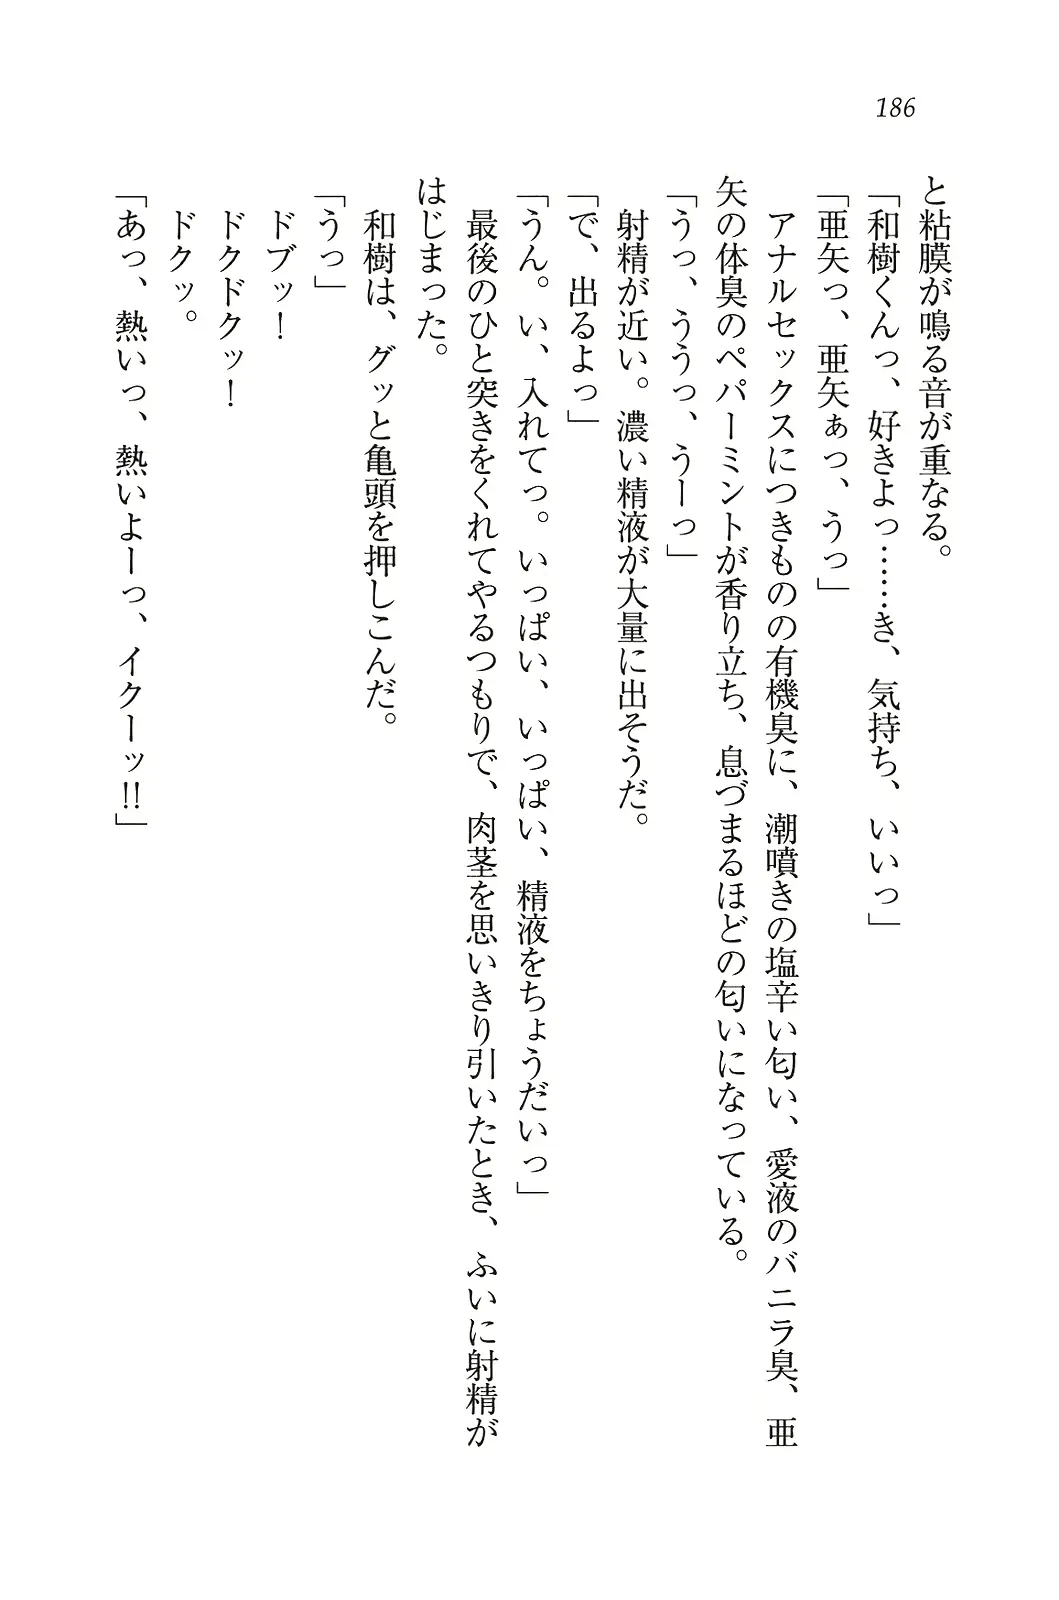 186
と粘膜が鳴る音が重なる。
「和樹くんっ、好きよっ……き、気持ち、いいっ」
「亜矢っ、亜矢ぁっ、うっ」
アナルセックスにつきものの有機臭に、潮噴きの塩辛い匂い、愛液のバニラ臭、亜
矢の体臭のペパーミントが香り立ち、息づまるほどの匂いになっている。
「うっ、ううっ、うーっ」
射精が近い。濃い精液が大量に出そうだ。
「で、出るよっ」
「うん。い、入れてっ。いっぱい、いっぱい、精液をちょうだいっ」
最後のひと突きをくれてやるつもりで、肉茎を思いきり引いたとき、ふいに射精が
はじまった。
和樹は、グッと亀頭を押しこんだ。
「うっ」
ドブッ！
ドクドクッ！
ドクッ。
「あっ、熱いっ、熱いよーっ、イクーッ!!」